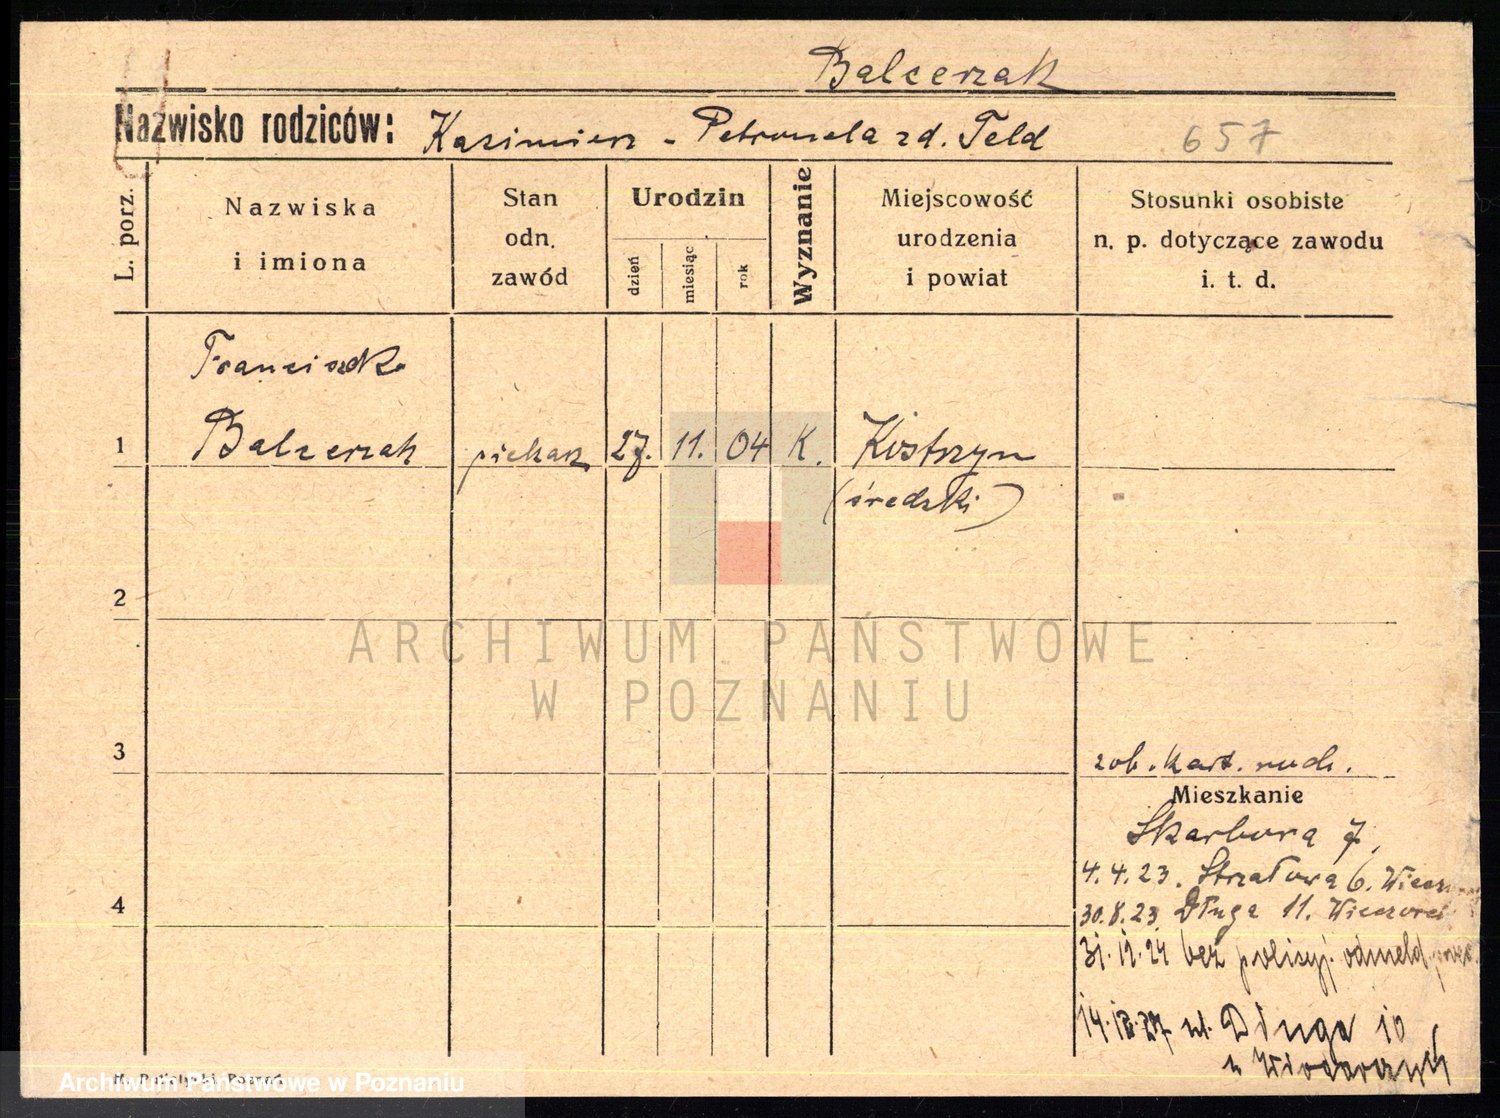 Balcerzak
Nazwisko rodziców: Kazimierz - Petronela zd. Feld 657
L. porz.
Nazwiska
i imiona
Stan
odn.
zawód
Urodzin
dzień
miesiąc
rok
Wyznanie
Miejscowość
urodzenia
i powiat
Stosunki osobiste
n. p. dotyczące zawodu
i. t. d.
Franciszka
1 Balcerzak piekarz 27. 11. 04 K. Kostrzyn
(średzki)
2
ARCHIWUM PAŃSTWOWE
W POZNANIU
3
zob. kart. ruch.
Mieszkanie
Skarbowa 7,
4
4.4.23. Strzałowa 6.
30.8.23 Długa 11.
31.12.24 bez policyj. odmeld.
14.12.27 ul. Długa 10
u
Poznań
Archiwum Państwowe w Poznaniu